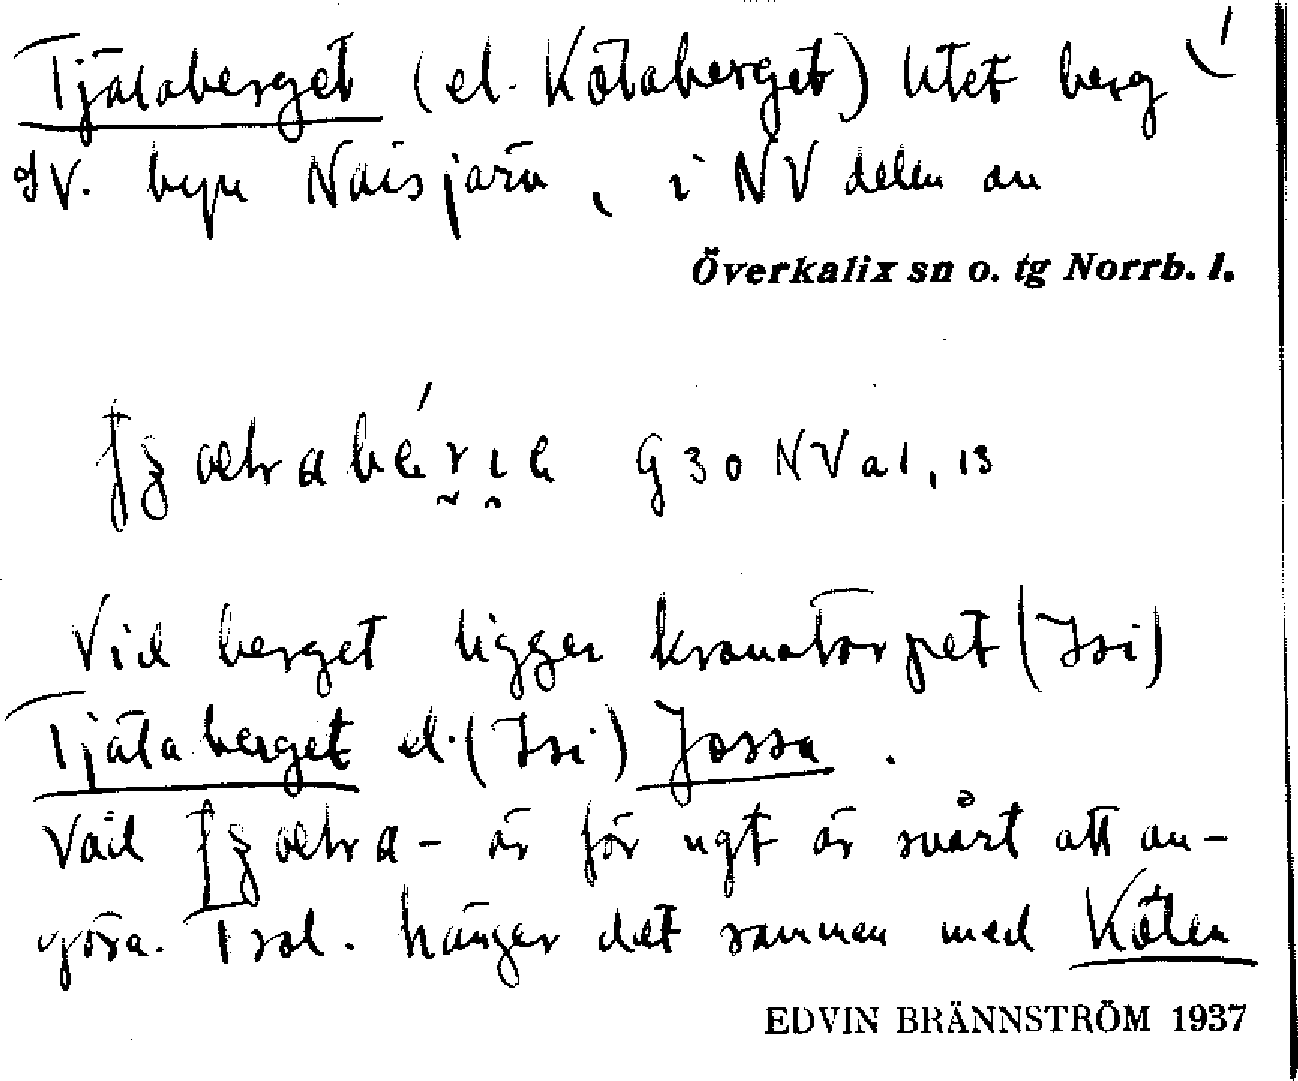 Tjätaberget (el. Kötaberget) litet berg
SV. byn Naisjärv, i NV delen av
Överkalix sn o. tg Norrb. l.
G 30 NV a 1, 13
Vid berget ligger kronotorpet (Isi)
Tjätaberget el. (Isi) Jossa.
Vad - är för ngt är svårt att av-
göra. Trol. hänger det samman med Köten
EDVIN BRÄNNSTRÖM 1937